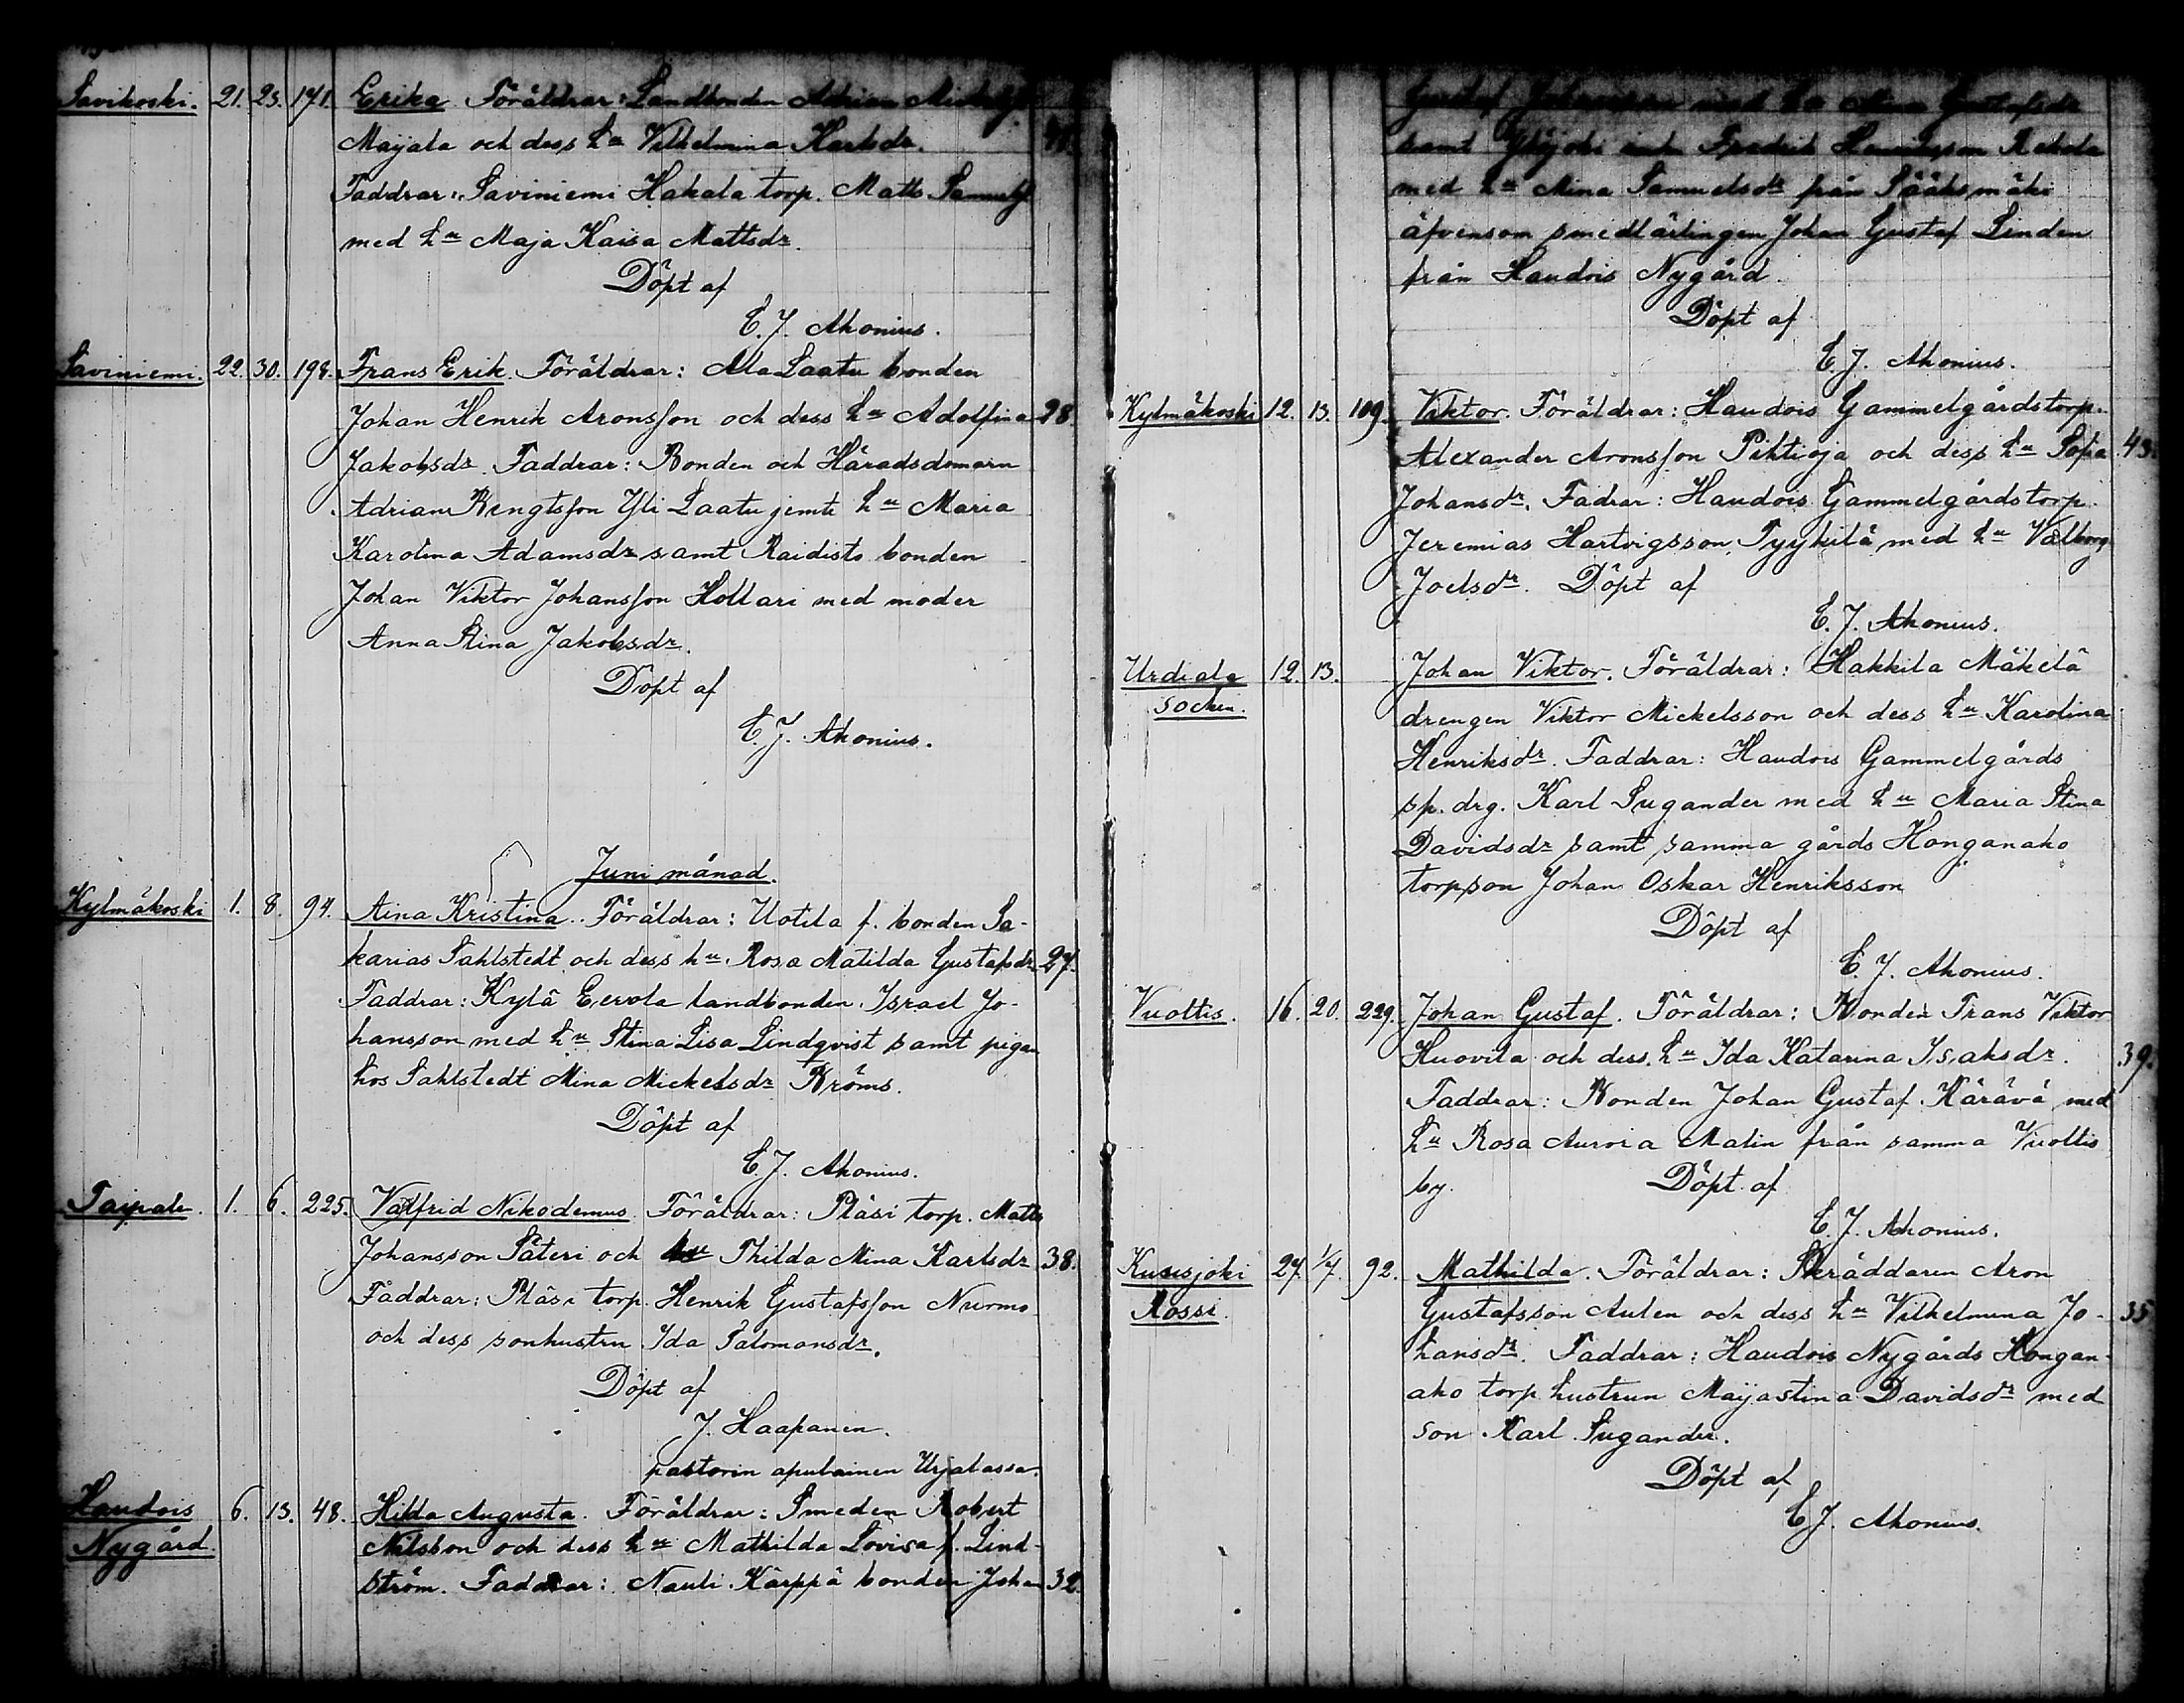 Savikoski. 21. 25. 171. Erika Föräldrar: Landbonden Adrian
Maijala och dess hu Vilhelmina Karlsdr. 41.
Faddrar: Saviniemi Hakala torp. Matts Samuelss
med hu Maja Kaisa Mattsdr.
Döpt af
E. J. Ahonius.
Saviniemi. 22. 30. 198. Frans Erik. Föräldrar: Ala Laatu bonden
Johan Henrik Aronsson och dess hu Adolfina 28
Jakobsdr. Faddrar: Bonden och Häradsdomarn
Adrian Bengtsson Yli Laatu jemte hu Maria
Karolina Adamsdr samt Raidisto bonden
Johan Viktor Johansson Hollari med moder
Anna Stina Jakobsdr.
Döpt af
E. J. Ahonius.
Juni månad.
Kylmäkoski 1. 8. 94. Aina Kristina. Föräldrar: Uotila f. bonden Sa-
karias Sahlstedt och dess hu Rosa Matilda Gustafsdr. 27.
Faddrar: Kylä Eerola landbonden Israel Jo-
hansson med hu Stina Lisa Lindqvist samt pigan
hos Sahlstedt Mina Mickelsdr Bröms.
Döpt af
E. J. Ahonius.
Taipale. 1. 6. 225. Valfrid Nikodemus. Föräldrar: Pläsi torp. Matts
Johansson Säteri och hu Thilda Mina Karlsdr 38.
Faddrar: Pläsi torp. Henrik Gustafsson Nurmo
och dess sonhustru Ida Salomonsdr.
Döpt af
J. Haapanen.
pastorin apulainen Urjalassa.
Haudois 6. 13. 48. Hilda Augusta. Föräldrar: Smeden Robert
Nygård. Nilsson och dess hu Mathilda Lovisa f. Lind-
ström. Faddrar: Nauli Kärppä bonden Johan 32.
Gustaf med hu Gustafsdr
samt Fredrik Henriksson
med hu Mina Samuelsdr från Sääksmäki
äfvensom smedlärlingen Johan Gustaf Linden
från Haudois Nygård.
Döpt af
E. J. Ahonius.
Kylmäkoski 12. 13. 109. Viktor. Föräldrar: Haudois Gammelgårdstorp.
Alexander Aronsson Pihtioja och dess hu Sofia 43.
Johansdr. Fadrar: Haudois Gammelgårdstorp.
Jeremias Hartvigsson Tyykilä med hu Valborg
Joelsdr. Döpt af
E. J. Ahonius.
Urdiala 12. 13. Johan Viktor. Föräldrar: Hakkila Mäkelä
socken. drengen Viktor Mickelsson och dess hu Karolina
Henriksdr. Faddrar: Haudois Gammelgårds
sp. drg. Karl Sugander med hu Maria Stina
Davidsdr samt samma gårds Honganaho
torpson Johan Oskar Henriksson
Döpt af
E. J. Ahonius.
Vuoltis. 16. 20. 229. Johan Gustaf. Föräldrar: Bonden Frans Viktor
Huovila och dess hu Ida Katarina Isaksdr. 39.
Faddrar: Bonden Johan Gustaf Kärävä med
hu Rosa Aurora Malin från samma Vuoltis
by. Döpt af
E. J. Ahonius.
Kuusjoki 27. 1/7. 92. Mathilda. Föräldrar: Skräddaren Aron
Rossi. Gustafsson Aulen och dess hu Vilhelmina Jo- 35
hansdr. Faddrar: Haudois Nygårds Hongan-
aho torp. hustrun Maijastina Davidsdr med
son Karl Sugander.
Döpt af
E. J. Ahonius.